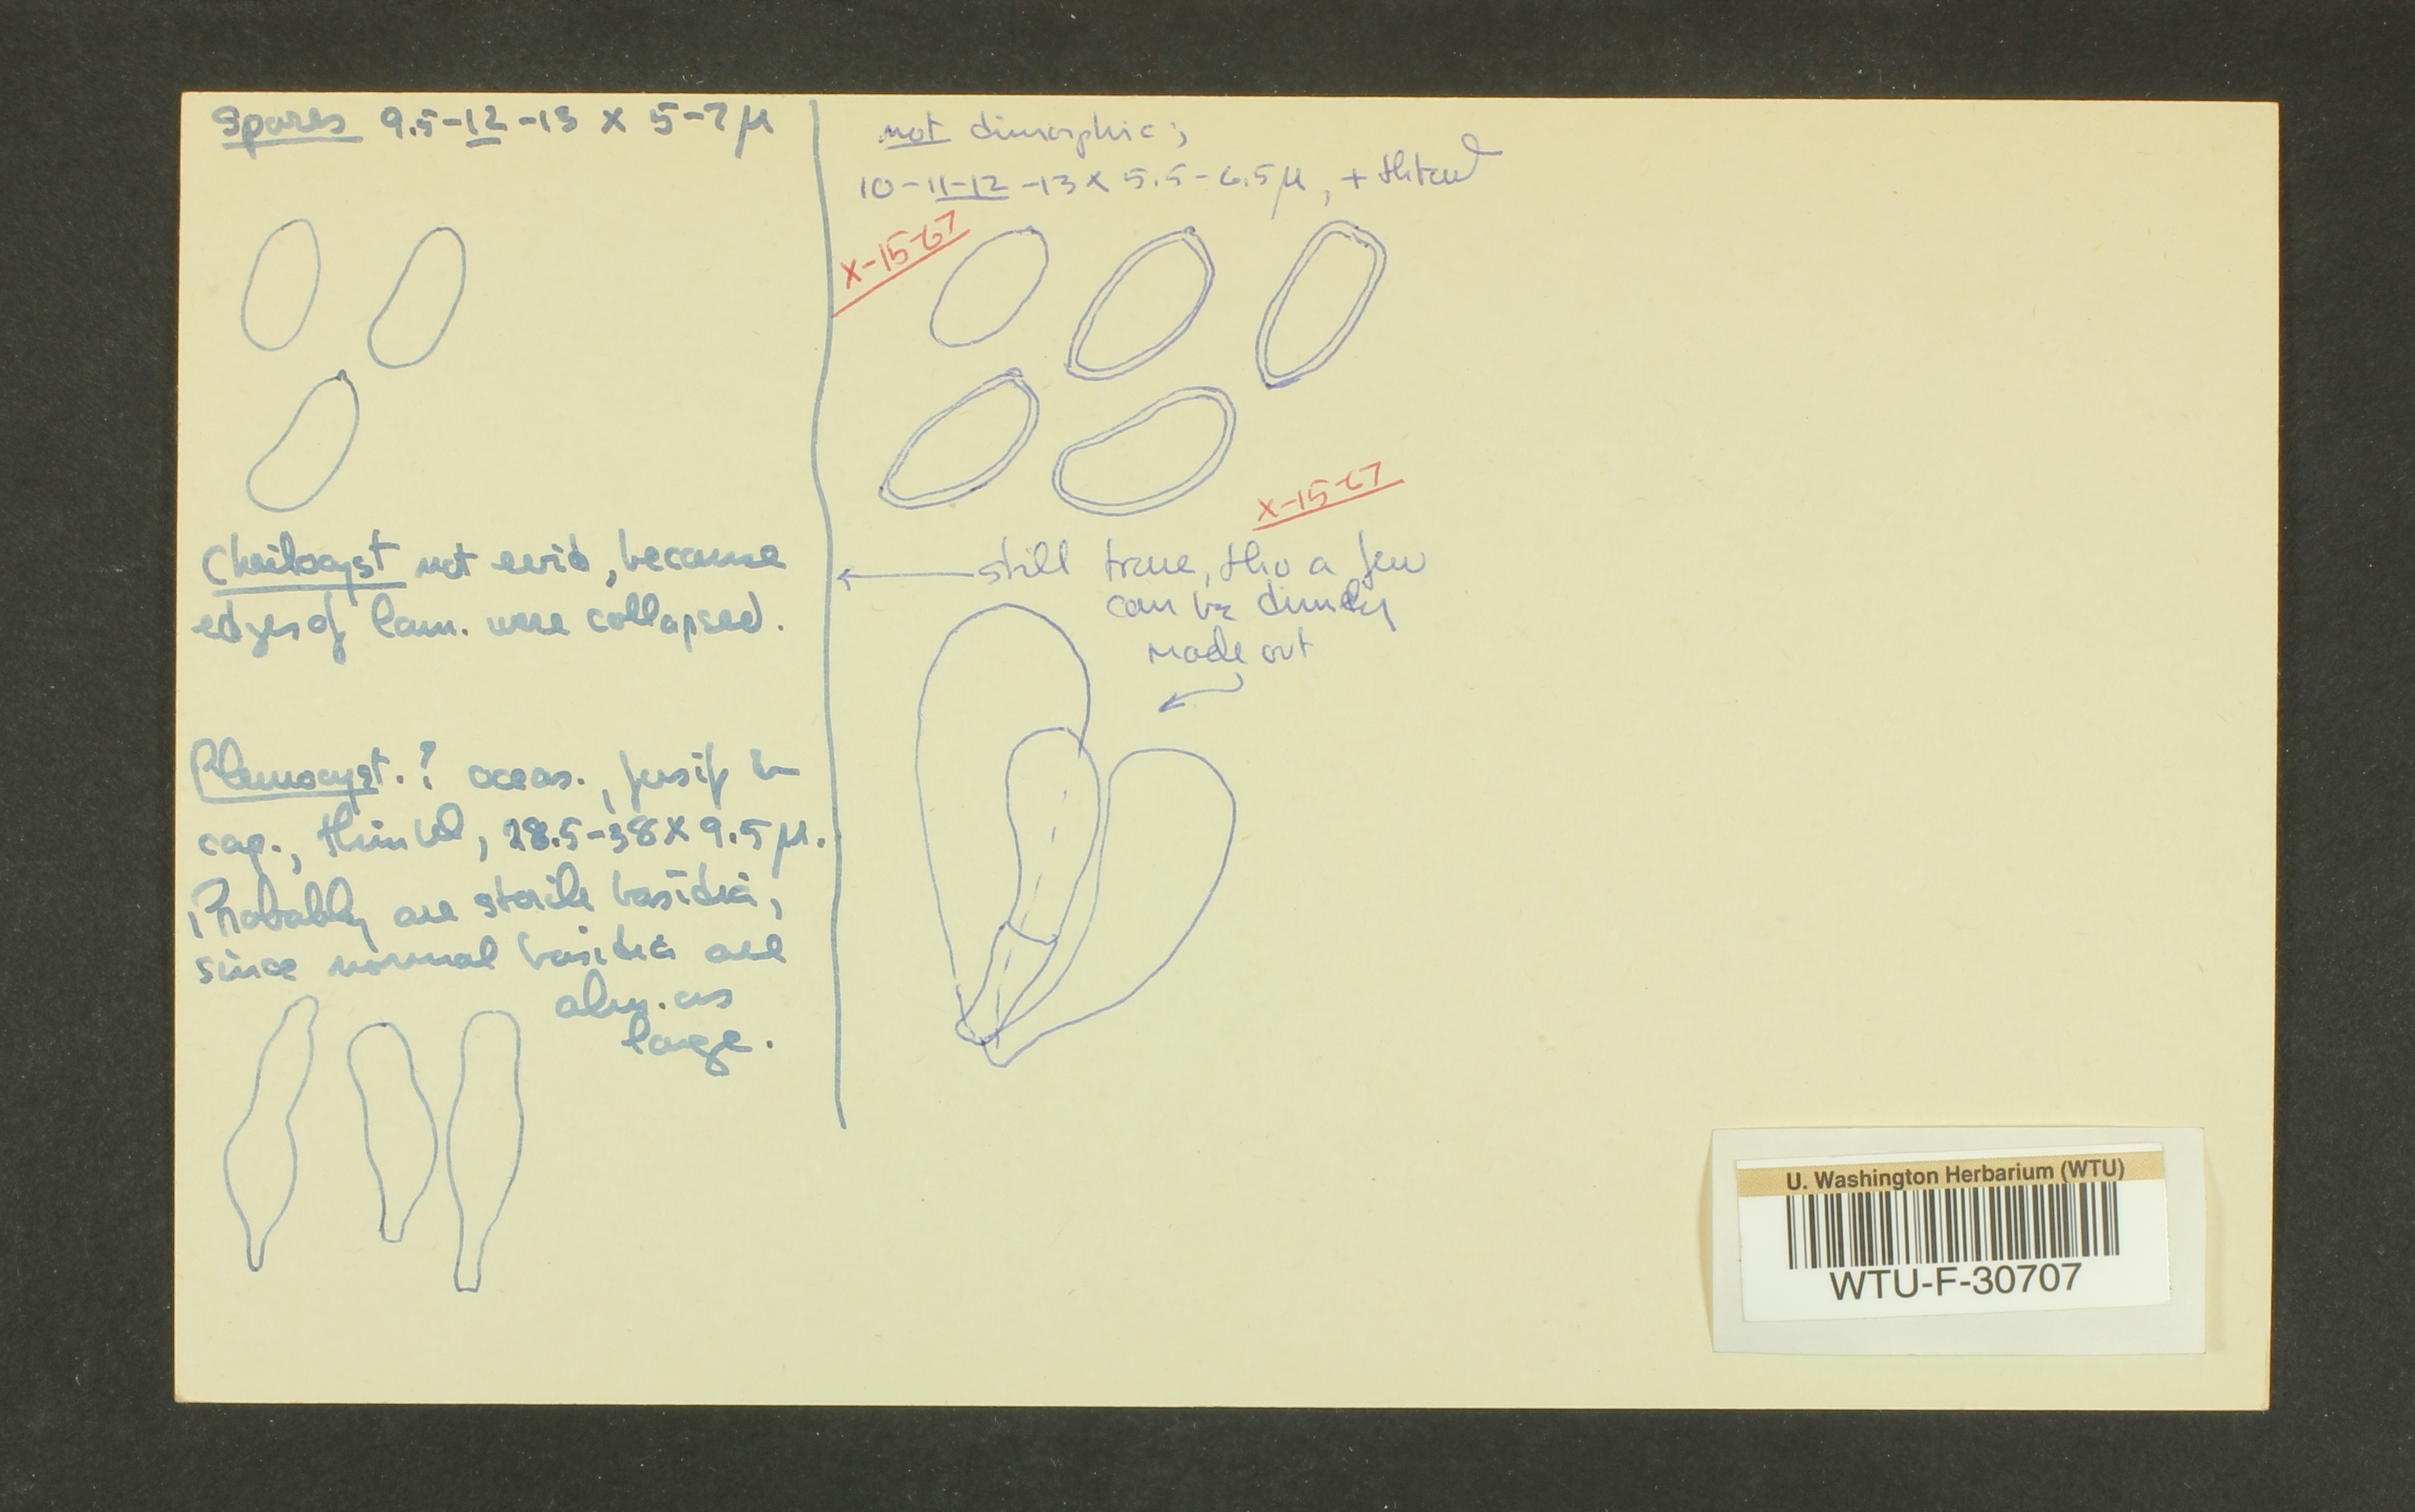 Spores 9.5-12-13 x 5-7 µ
Cheilocyst not evid, because
edges of lam. were collapsed.
Pleurocyst. ? occas., fusif to
cap., thin wld, 28.5-38 x 9.5 µ.
Probably are sterile basidia,
since normal basidia are
also. as
large.
not dimorphic;
10-11-12-13 x 5.5-6.5 µ, +
X-15-67
X-15-67
still true, tho a few
can be dimly
made out
U. Washington Herbarium (WTU)
WTU-F-30707